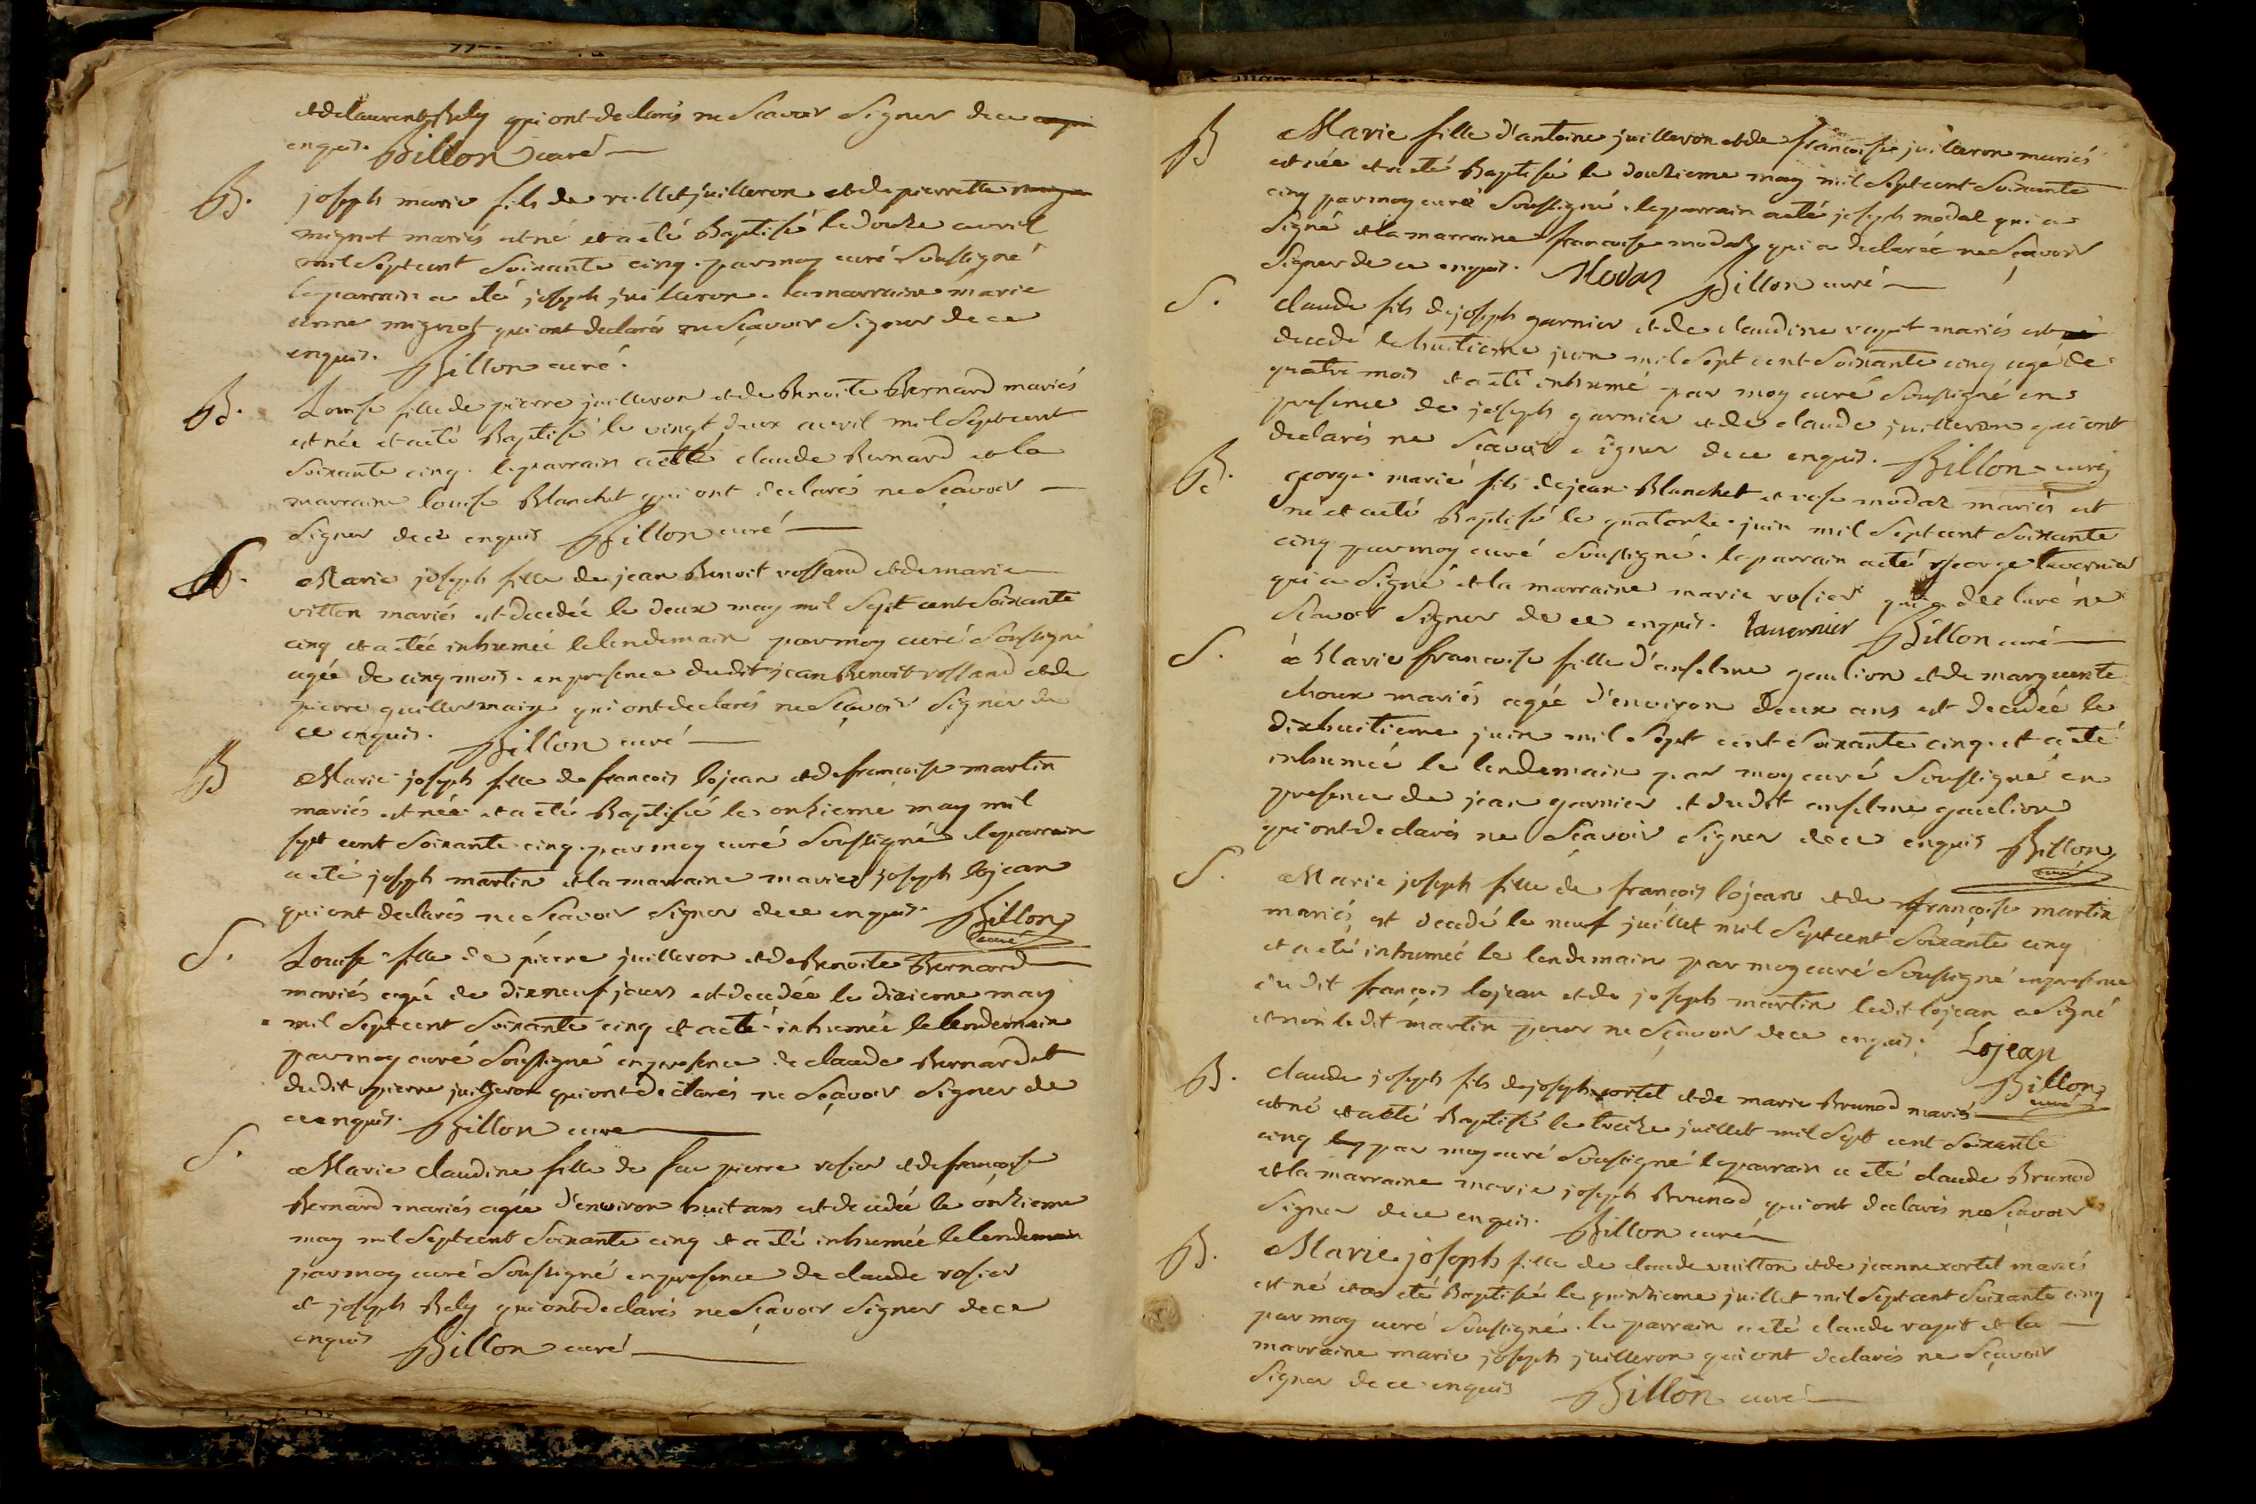 et de laurent Bely qui ont declarés ne Scavoir Signer de ce
enquis. Billon curé
B. joseph marie fils de juilleron et de pierrette
mignot mariés est né et a eté Baptisé le douze avril
mil Sept cent Soixante cinq. par moy curé Soussigné
le parrain a eté joseph juilleron. la marraine marie
anne mignot qui ont declarés ne Sçavoir Signer de ce
enquis. Billon curé.
B. Louise fille de pierre juilleron et de Benoite Bernard mariés
est née et a eté Baptisé le vingt deux avril mil Sept cent
Soixante cinq. le parrain a eté claude Bernard et la
marraine louise Blanchet qui ont declarés ne Sçavoir
Signer de ce enquis Billon curé
S. Marie joseph fille de jean Benoit rossand et de marie
vitton mariés est decedée le deux may mil Sept cent Soixante
cinq et a etée inhumée le lendemain par moy curé Soussigné
agée de cinq mois. en presence dudit jean Benoit rossand et de
pierre guillermain qui ont declarés ne Sçavoir Signer de
ce enquis. Billon curé
B Marie joseph fille de francois lojean et de francoise martin
mariés est née et a eté Baptisée le onzieme may mil
sept cent Soixante cinq. par moy curé Soussigné le parrain
a eté joseph martin et la marraine marie joseph lojean
qui ont declarés ne Sçavoir Signer de ce enquis. Billon
curé
S. Louise fille de pierre juilleron et de Benoite Bernard
mariés agée de dix neuf jours est decedée le dixieme may
mil Sept cent Soixante cinq et a eté inhumée le lendemain
par moy curé Soussigné en presence de claude Bernard et
dudit pierre juilleron qui ont declarés ne Sçavoir Signer de
ce enquis. Billon curé
S. Marie claudine fille de feu pierre rosier et de françoise
Bernard mariés agée d'environ huit ans est decedée le onzieme
may mil Sept cent Soixante cinq et a eté inhumée le lendemain
par moy curé Soussigné en presence de claude rosier
et joseph Bely qui ont declarés ne Sçavoir Signer de ce
enquis Billon curé
B Marie fille d'antoine juilleron et de francoise juilleron mariés
est née et a eté Baptisé le douzieme may mil Sept cent Soixante
cinq par moy curé Soussigné. le parrain a eté joseph modaz qui a
Signé et la marraine francoise modaz qui a declarée ne Sçavoir
Signer de ce enquis. Modaz Billon curé
S. claude fils de joseph garnier et de claudine raput mariés est
decedé le huitieme juin mil Sept cent Soixante cinq agé de
quatre mois et a eté inhumé par moy curé Soussigné en
presence de joseph garnier et de claude juilleron qui ont
declarés ne Sçavoir Signer de ce enquis. Billon curé
B. george marié fils de jean Blanchet et rose modaz mariés est
né et a eté Baptisé le quatorze juin mil Sept cent Soixante
cinq par moy curé Soussigné. le parrain a eté george tavernier
qui a Signé et la marraine marie rosier qui a declaré ne
Scavoir Signer de ce enquis. tavernier Billon curé
S. Marie francoise fille d'anselme gaulion et de marguerite
choux mariés agée d'environ deux ans est decedée le
dixhuitieme juin mil Sept cent Soixante cinq. et a eté
inhumée le lendemain par moy curé Soussigné en
presence de jean garnier et dudit anselme gaulion
qui ont declarés ne Sçavoir Signer de ce enquis Billon
curé
S. Marie joseph fille de francois lojean et de françoise martin
mariés est decedé le neuf juillet mil Sept cent Soixante cinq
et a eté inhumée le lendemain par moy curé Soussigné en presence
dudit françois lojean et de joseph martin ledit lojean a Signé
et non ledit martin pour ne Sçavoir de ce enquis. Lojean
Billon
curé
B. claude joseph fils de joseph vortel et de marie Brunod mariés
est né et a eté Baptisé le treize juillet mil Sept cent Soixante
cinq par moy curé Soussigné le parrain a eté claude Brunod
et la marraine marie joseph Brunod qui ont declarés ne Sçavoir
Signer de ce enquis. Billon curé
B. Marie joseph fille de claude vuitton et de jeanne vortel mariés
est né et a eté Baptisée le quinzieme juillet mil Sept cent Soixante cinq
par moy curé Soussigné. le parrain a eté claude raput et la
marraine marie joseph juilleron qui ont declarés ne Sçavoir
Signer de ce enquis Billon curé